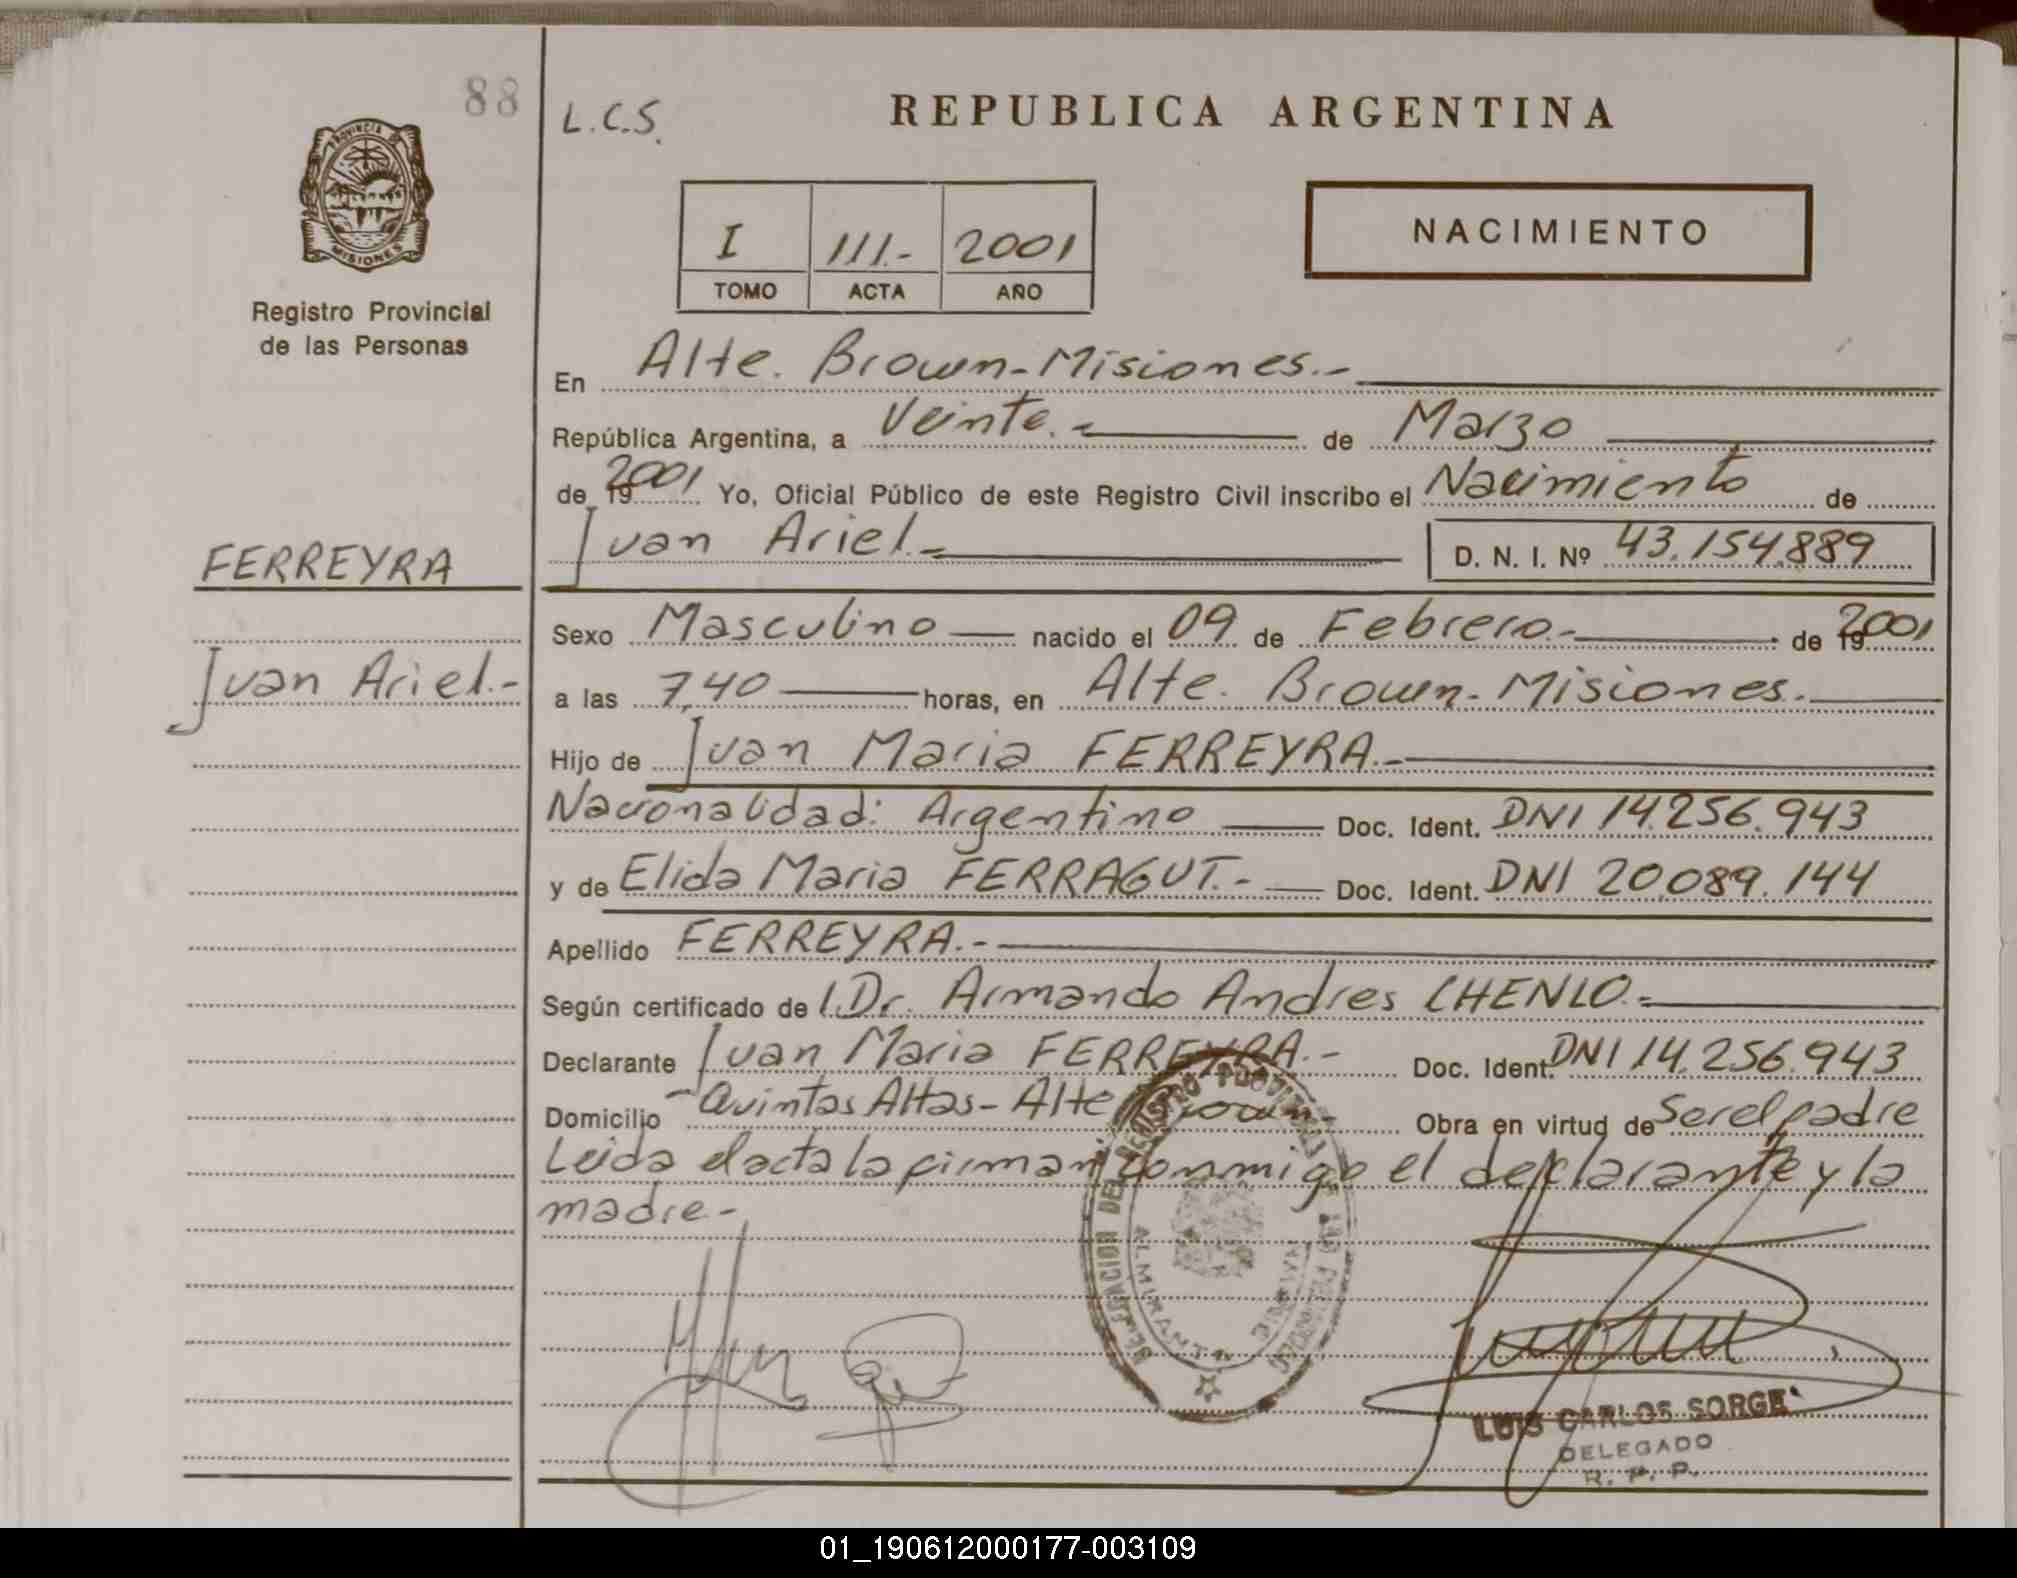 88
PROVINCIA DE
MISIONES
Registro Provincial
de las Personas
FERREYRA
Juan Ariel.-
L.C.S.
REPUBLICA ARGENTINA
I 111.- 2001
TOMO ACTA AÑO
NACIMIENTO
En Alte. Brown-Misiones.-
República Argentina, a Veinte.- de Marzo
de 19 2001 Yo, Oficial Público de este Registro Civil inscribo el Nacimiento de
Juan Ariel.- D. N. I. Nº 43.154.889
Sexo Masculino nacido el 09 de Febrero.- de 19 2001
a las 7,40 horas, en Alte. Brown-Misiones.
Hijo de Juan Maria FERREYRA.-
Nacionalidad: Argentino Doc. Ident. DNI 14.256.943
y de Elida Maria FERRAGUT.- Doc. Ident. DNI 20.089.144
Apellido FERREYRA.-
Según certificado de l.Dr. Armando Andres CHENLO.-
Declarante Juan Maria FERREYRA.- Doc. Ident. DNI 14.256.943
Domicilio -Quintas Altas-Alte Brown- Obra en virtud de Ser el padre
Leida el acta la firman conmigo el declarante y la
madre.-
DELEGACION DEL REGISTRO PROVINCIAL DE LAS PERSONAS
ALMIRANTE BROWN
LUIS CARLOS SORGE
DELEGADO
R. P. P.
01_190612000177-003109